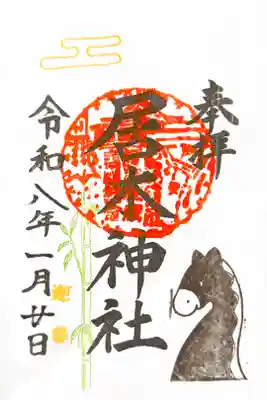 奉拝
居木神社
令和八年一月廿日